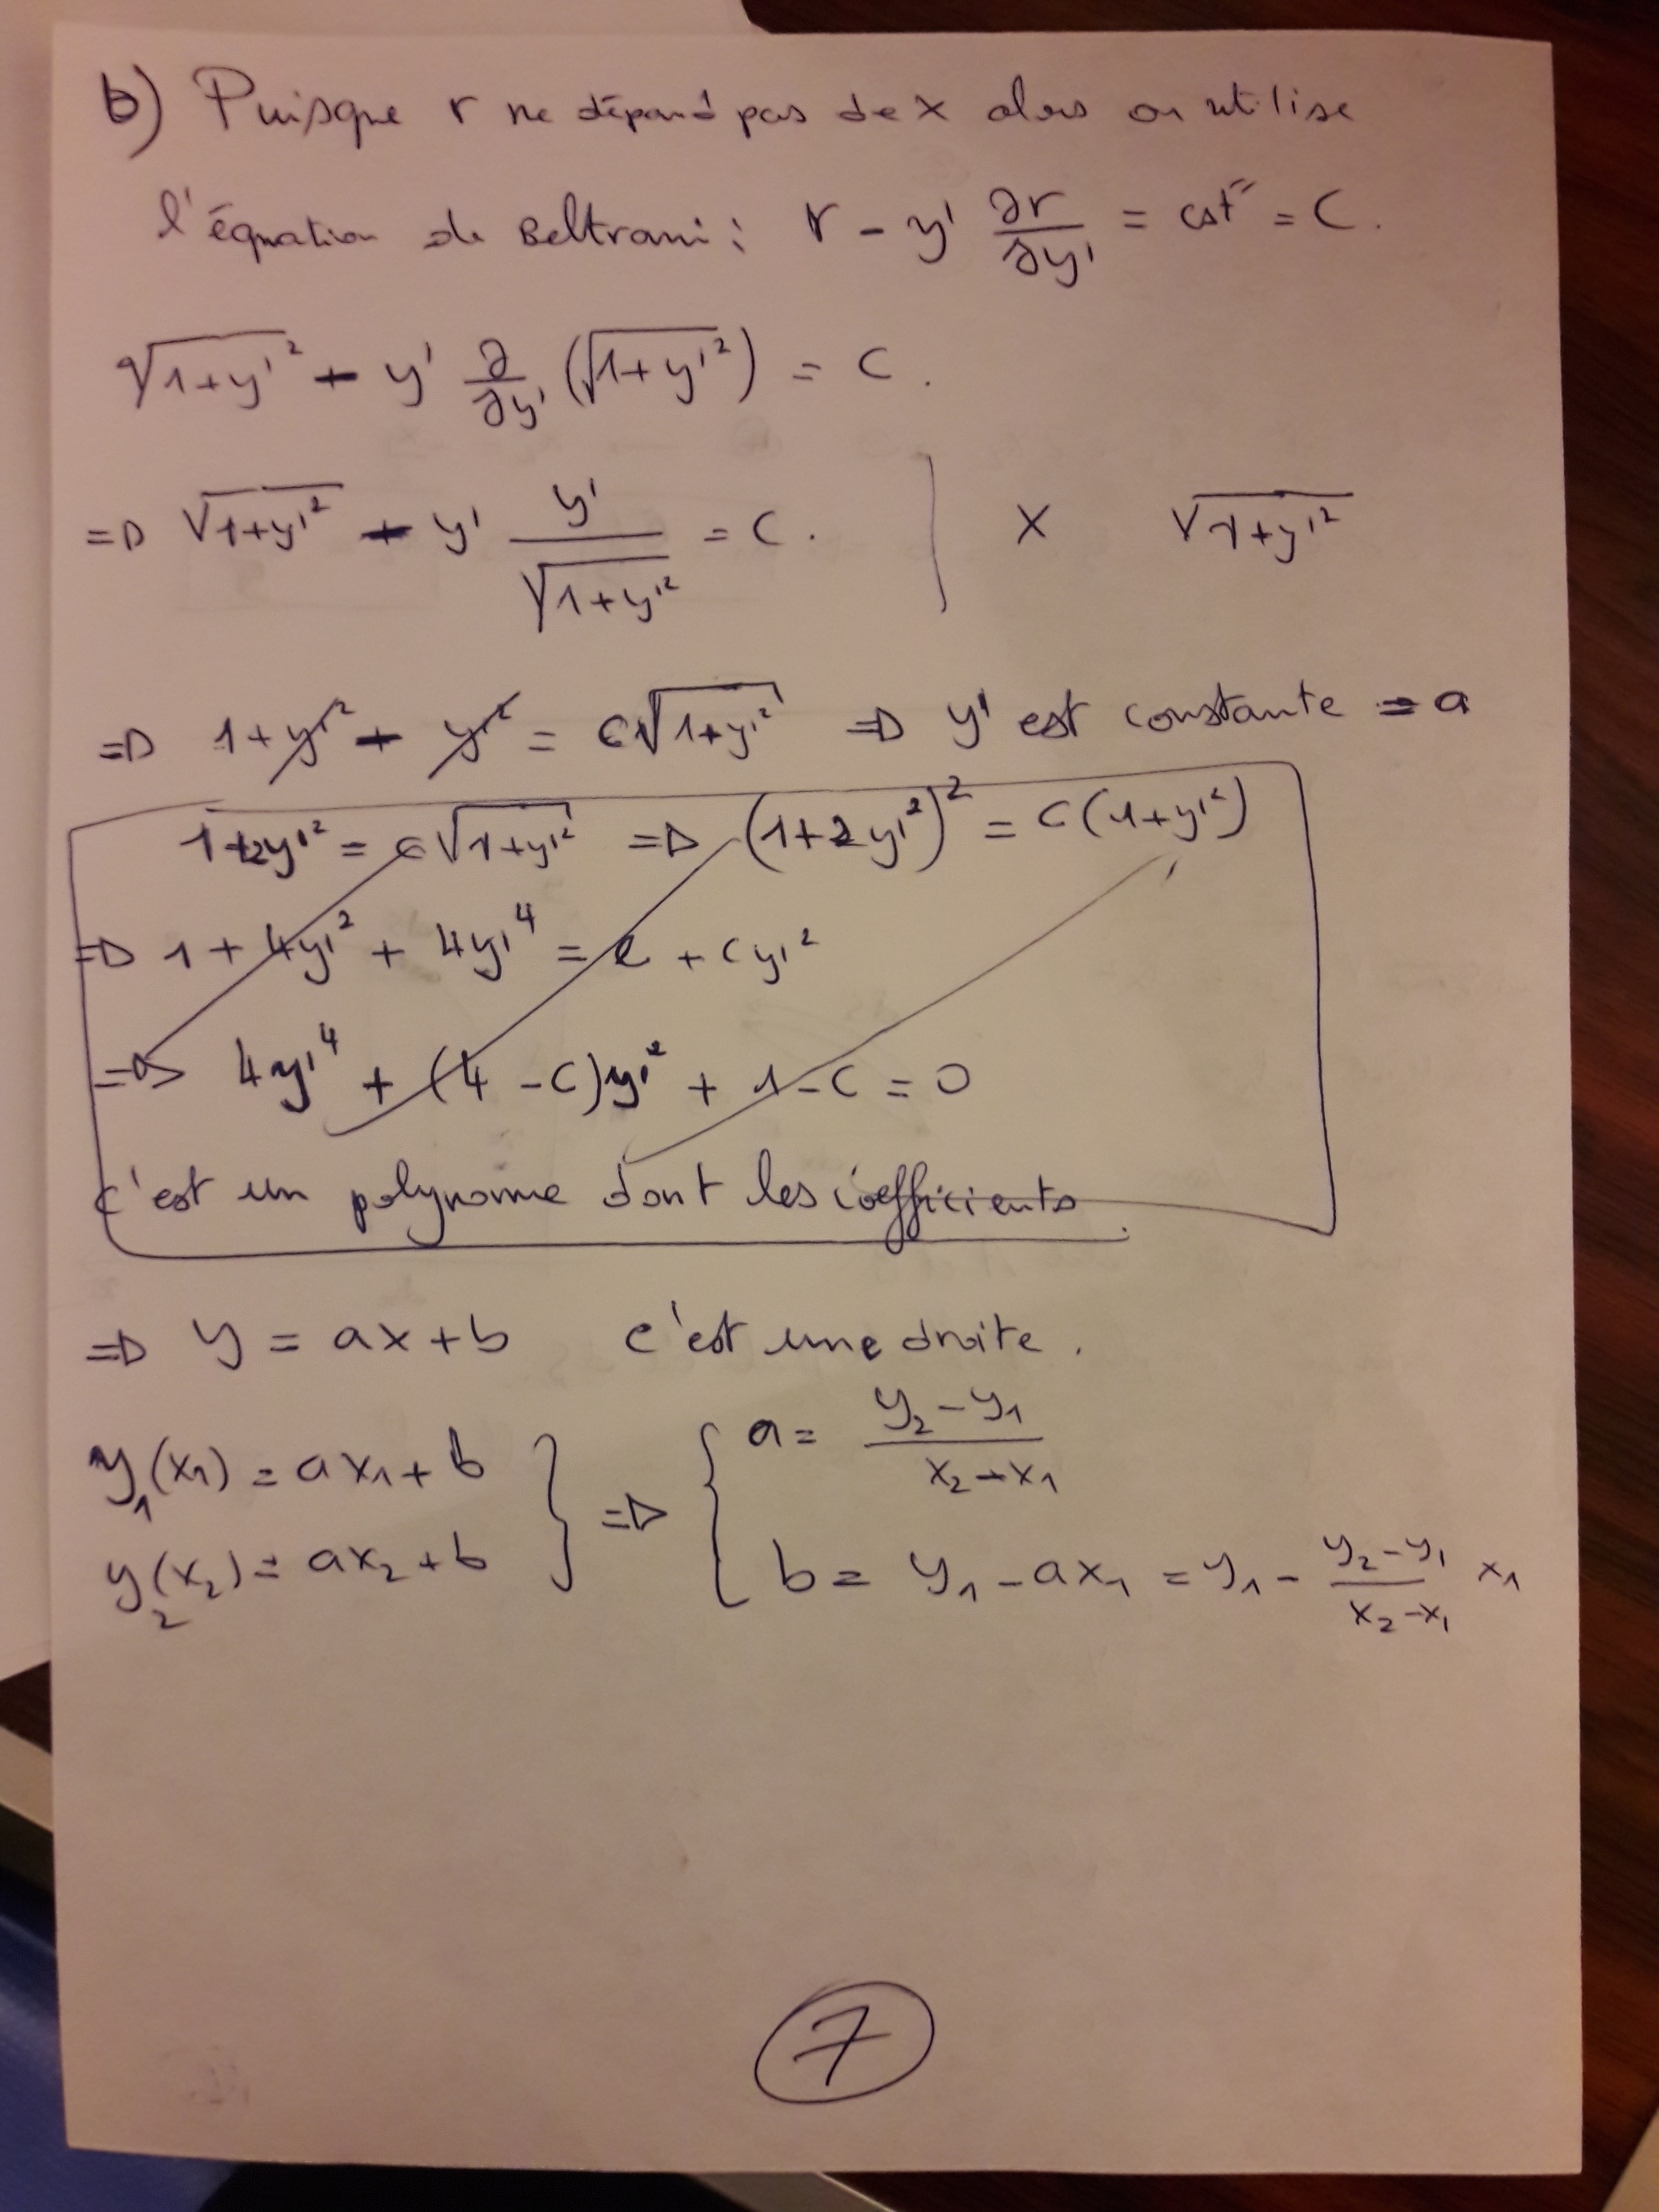 b) Puisque r ne dépend pas de x alors on utilise
l'équation de Beltrami : r - y' ∂r/∂y' = cste = C.
√(1+y'²) - y' ∂/∂y' (√(1+y'²)) = C.
=> √(1+y'²) - y' y'/√(1+y'²) = C. | × √(1+y'²)
=> 1+y'² - y'² = C√(1+y'²) => y' est constante = a
1+2y'² = C√(1+y'²) => (1+2y'²)² = C(1+y'²)
=> 1 + 4y'² + 4y'⁴ = C + Cy'²
=> 4y'⁴ + (4-C)y'² + 1-C = 0
c'est un polynome dont les coefficients
=> y = ax+b c'est une droite.
y₁(x₁) = ax₁+b } => { a = (y₂-y₁)/(x₂-x₁)
y₂(x₂) = ax₂+b b = y₁-ax₁ = y₁ - (y₂-y₁)/(x₂-x₁) x₁
7